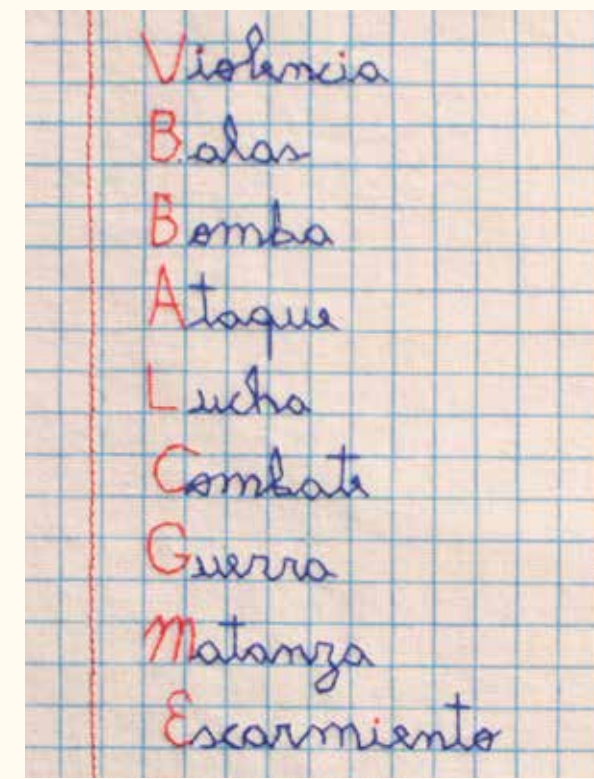 Violencia
Balas
Bomba
Ataque
Lucha
Combate
Guerra
Matanza
Escarmiento